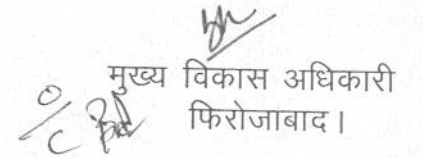 मुख्य विकास अधिकारी
फिरोजाबाद।
O/C